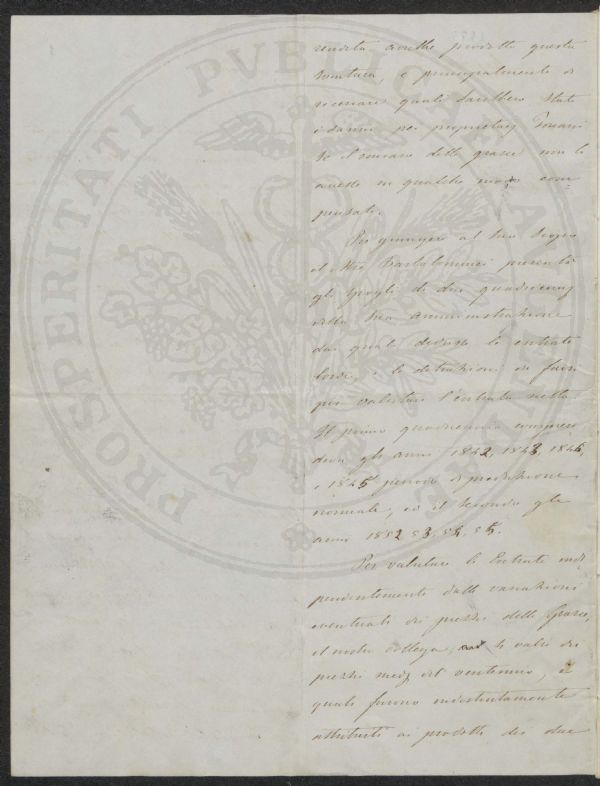 rendita avrebbe prodotto questa
e principalmente di
ricercare quali sarebbero stati
i danni pei proprietarj Toscani
se il rincaro delle grasce non li
avesse in qualche modo com=
pensati.
Per giungere al suo scopo
el Mro Bartolommei presentò
gli spogli di due quadriennj
della sua amministrazione
dai quali dedusse le entrate
lorde, e le detrazioni da farsi
per valutare l'entrata netta.
Il primo quadriennio compren
deva gli anni 1842, 1843, 1844,
e 1845 periodo di produzione
normale, ed il secondo gli
anni 1852 53, 54, 55.
Per valutare le Entrate indi
pendentemente dalle variazioni
eventuali dei prezzi delle Grasce,
il nostro collega, si valse dei
prezzi medj del ventennio, i
quali furono indistintamente
attribuiti ai prodotti dei due
PROSPERITATI PVBLICAE AVGENDAE